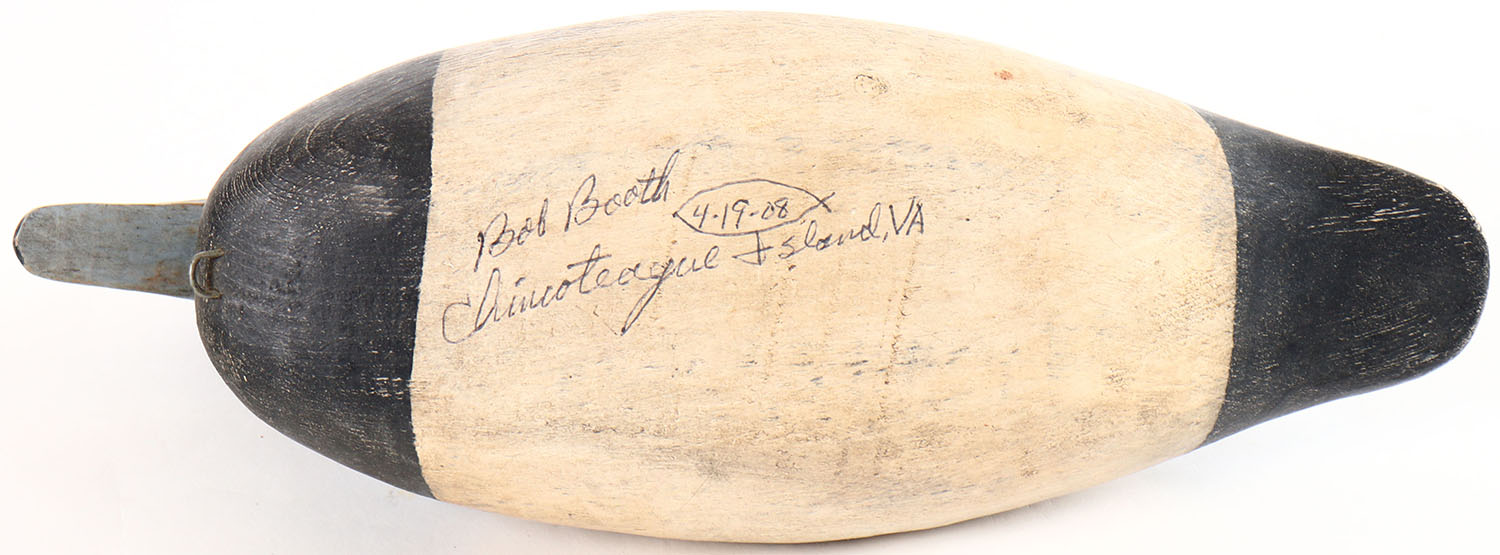 Bob Booth
4-19-08
Chincoteague Island, VA